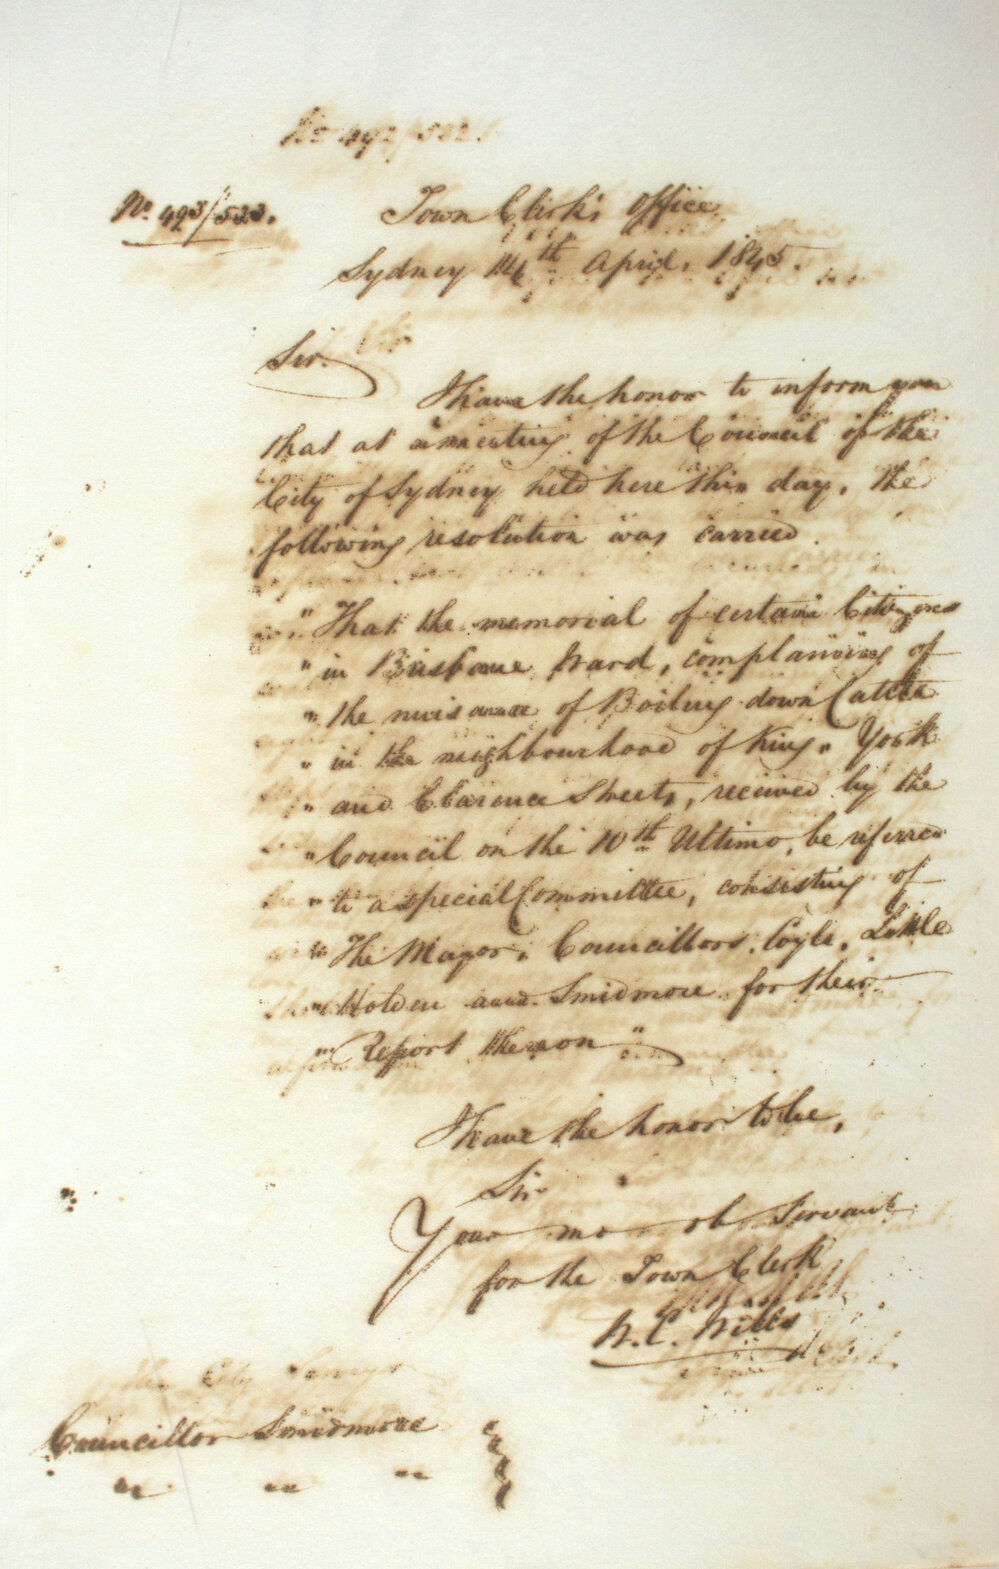 No. 492/522.
No. 493/533.
Town Clerk's Office
Sydney 14th April, 1845.
Sir.
I have the honor to inform you
that at a meeting of the Council of the
City of Sydney held here this day, the
following resolution was carried.
" That the memorial of certain Citizens
" in Brisbane Ward, complaining of
" the nuisance of Boiling down Cattle
" in the neighbourhood of King, York
" and Clarence Streets, received by the
" Council on the 10th Ultimo, be referred
" to a special Committee, consisting of
" The Mayor, Councillors, Coyle, Little
" Holden and Smidmore for their
" Report thereon "
I have the honor to be,
Sir
Your mo ob Servant
for the Town Clerk
W. C. Wills
Councillor Smidmore
" " "